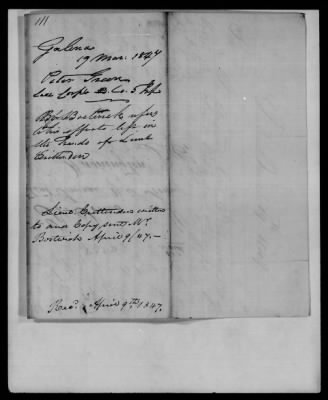 111
Galena
19 Mar. 1847
Peter Green
late Corpl B. Co. 5 Inf
Robt Bostwick
his effects left in
the hands of Lieut
Crittenden
Lieut Crittenden written
to and Copy sent Mr.
Bostwick April 9/47.—
Recd. April 9th 1847.